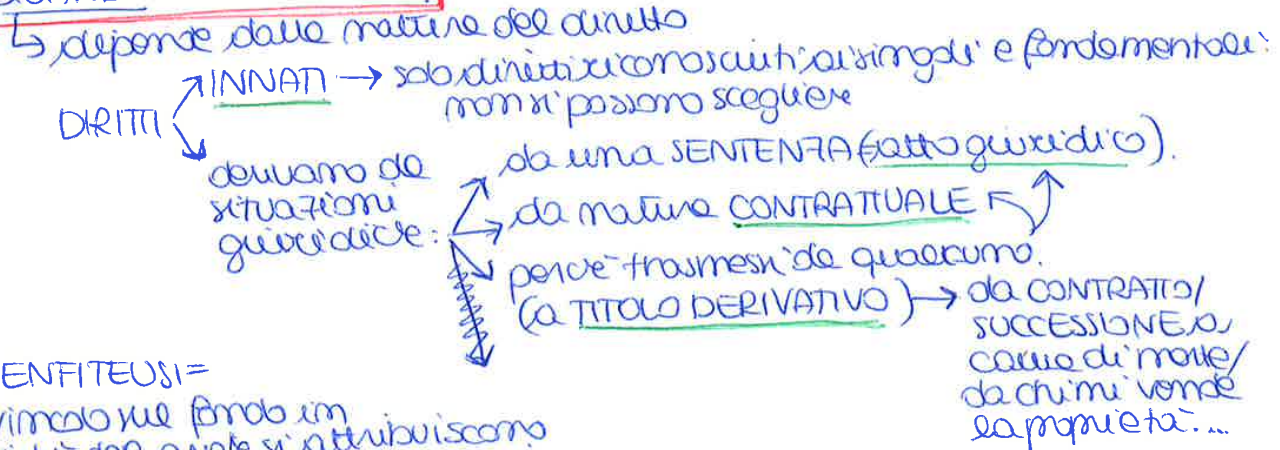 ↳ dipende dalla natura del diritto
DIRITTI
INNATI → sono diritti riconosciuti ai singoli e fondamentali:
non si possono scegliere
derivano da
situazioni
giuridiche:
da una SENTENZA (fatto giuridico).
da natura CONTRATTUALE
perché trasmessi da qualcuno.
(a TITOLO DERIVATIVO) → da CONTRATTO/
SUCCESSIONE a
causa di morte/
da chi mi vende
la proprietà...
ENFITEUSI=
vincolo sul fondo in
si attribuiscono